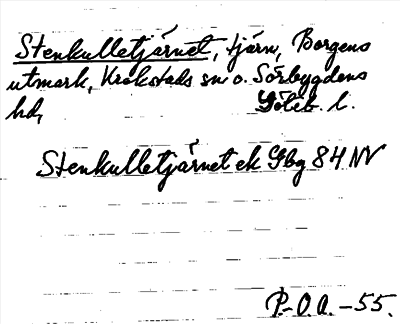 Stenkulletjärnet, tjärn, Borgens
utmark, Krokstads sn o. Sörbygdens
hd, Göteb. l.
Stenkulletjärnet ek Gbg 84 NV
P.-O.O. -55.